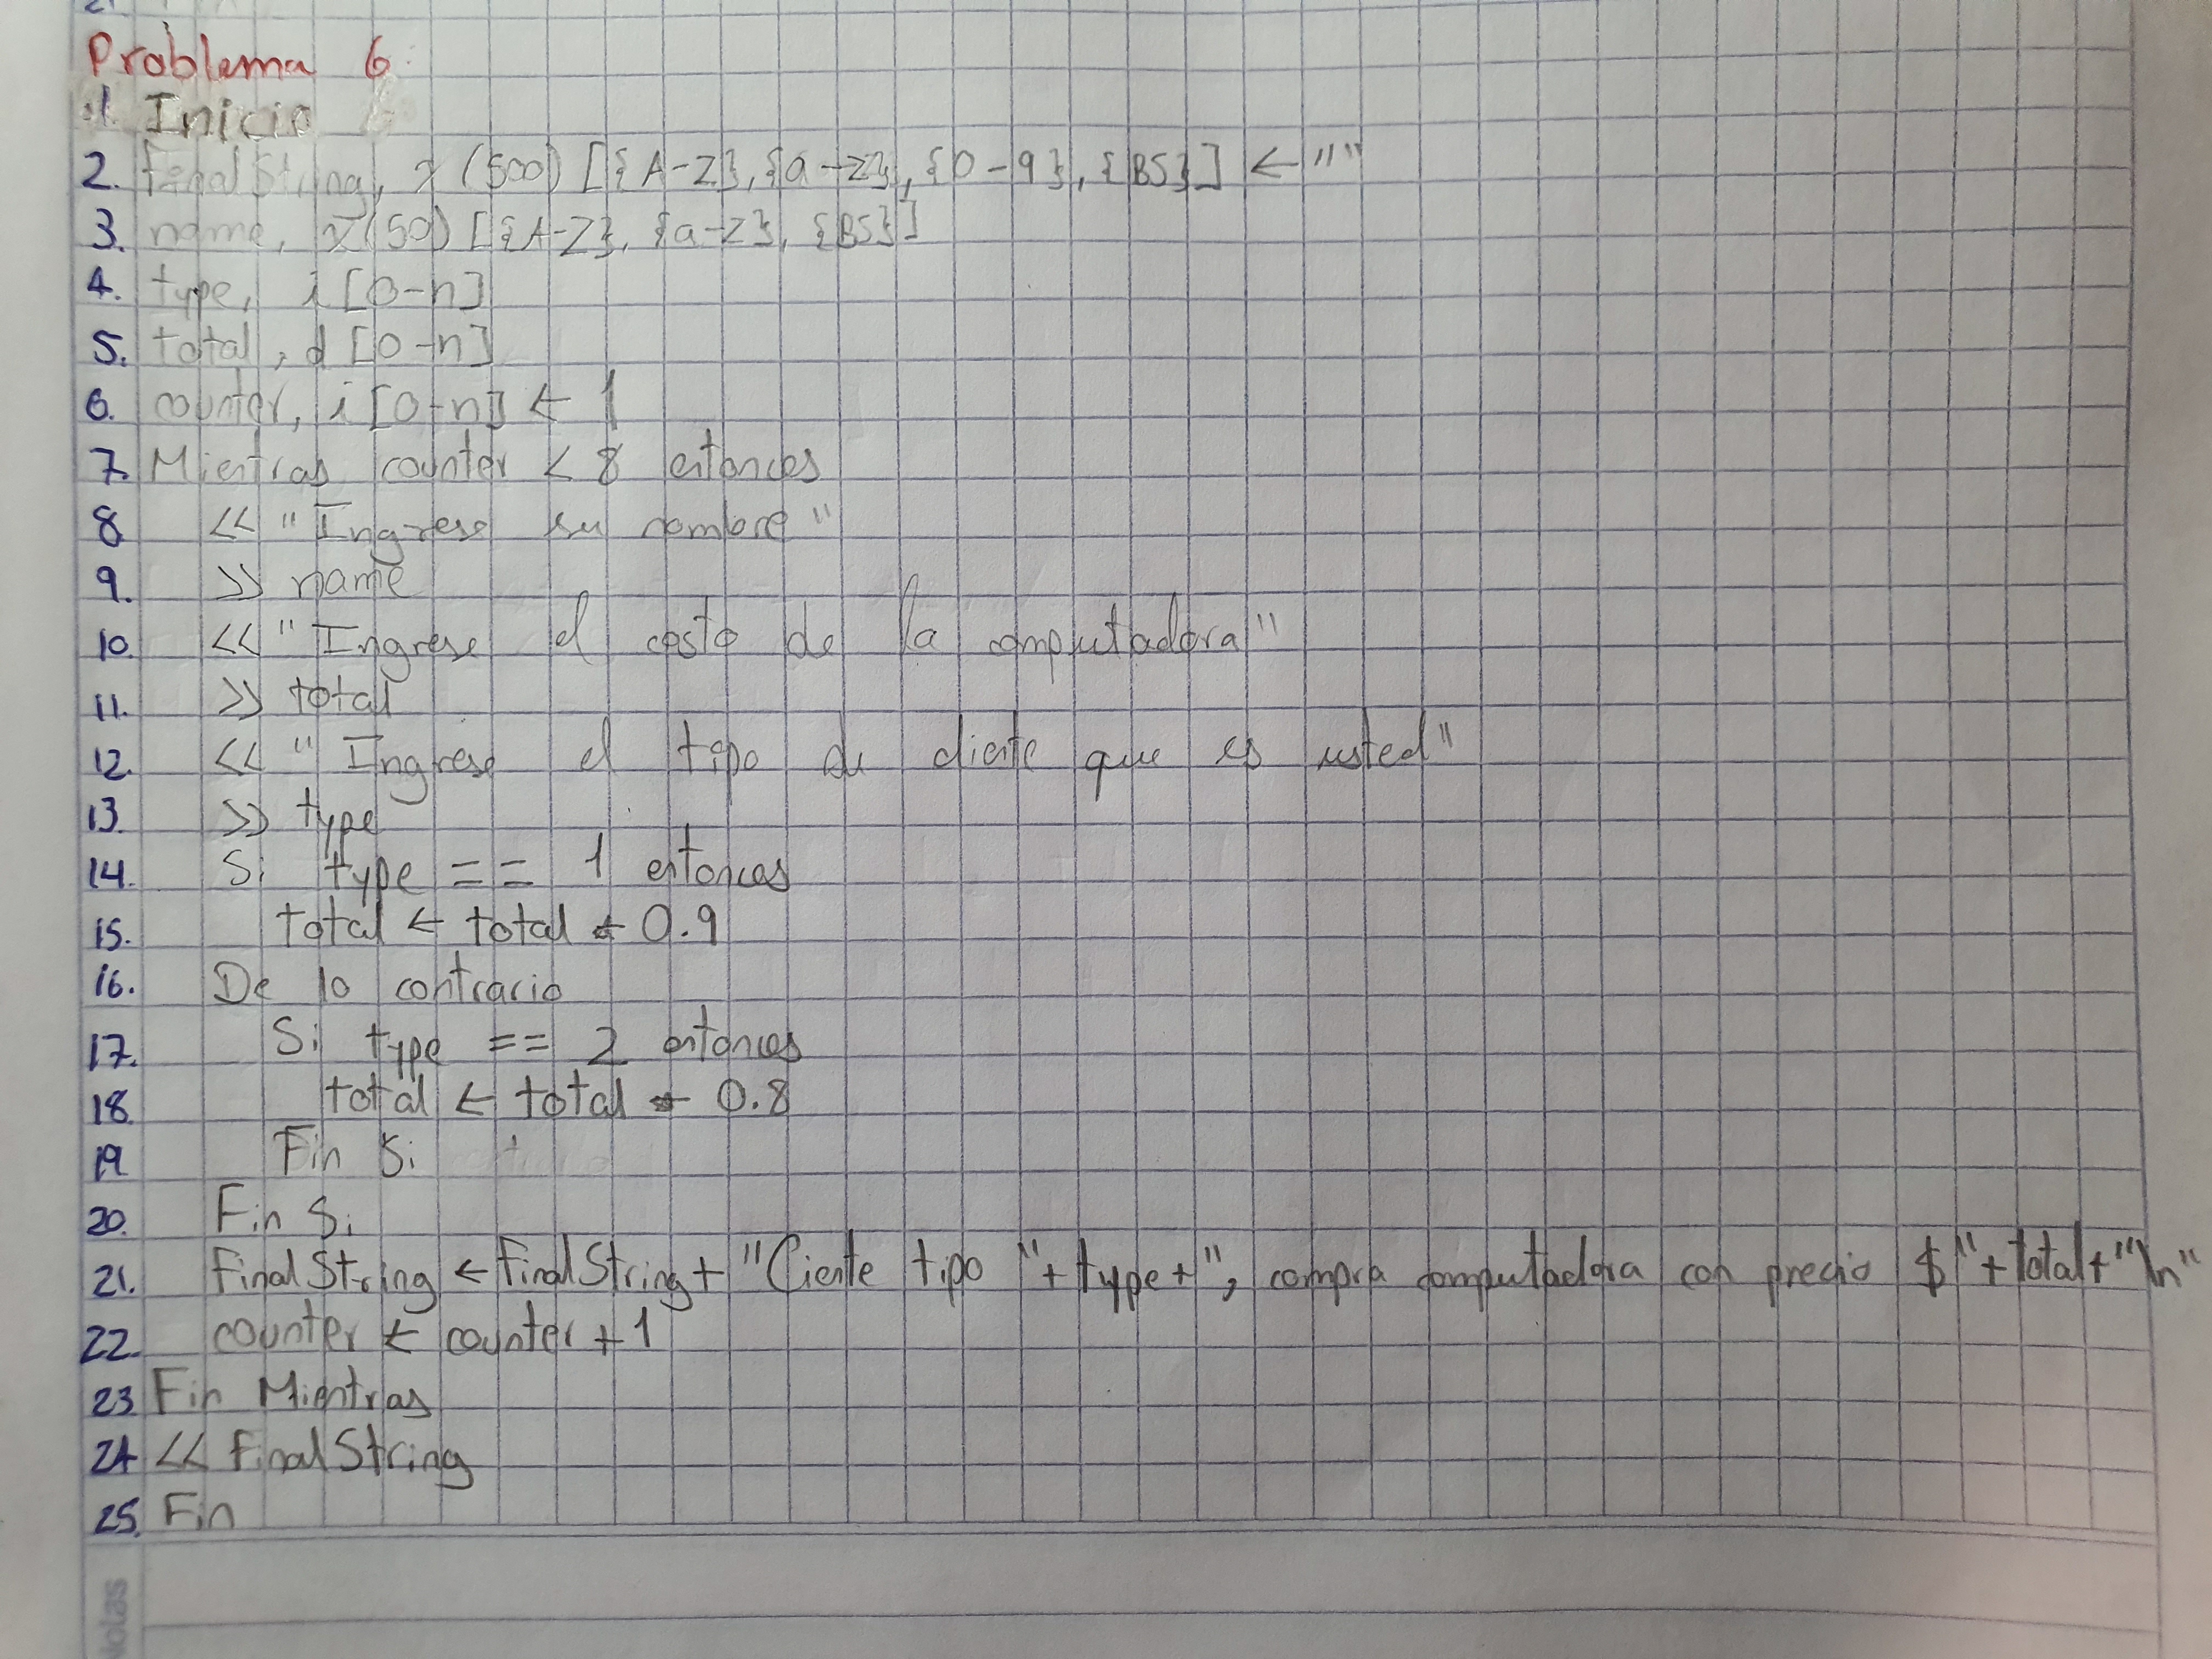 Problema 6
1. Inicio
2. finalString, x (500) [{A-Z}, {a-z}, {0-9}, {BS}] ← ""
3. name, x(50) [{A-Z}, {a-z}, {BS}]
4. type, i [0-n]
5. total, d [0-n]
6. counter, i [0-n] ← 1
7. Mientras counter < 8 entonces
8 << "Ingrese su nombre"
9. >> name
10. << "Ingrese el costo de la computadora"
11. >> total
12. << "Ingrese el tipo de cliente que es usted"
13. >> type
14. Si type == 1 entonces
15. total ← total * 0.9
16. De lo contrario
17. Si type == 2 entonces
18. total ← total * 0.8
19 Fin Si
20. Fin Si
21. FinalString ← FinalString + "Ciente tipo "+type+", compra computadora con precio $"+total+"\n"
22. counter ← counter + 1
23. Fin Mientras
24 << FinalString
25. Fin
Notas